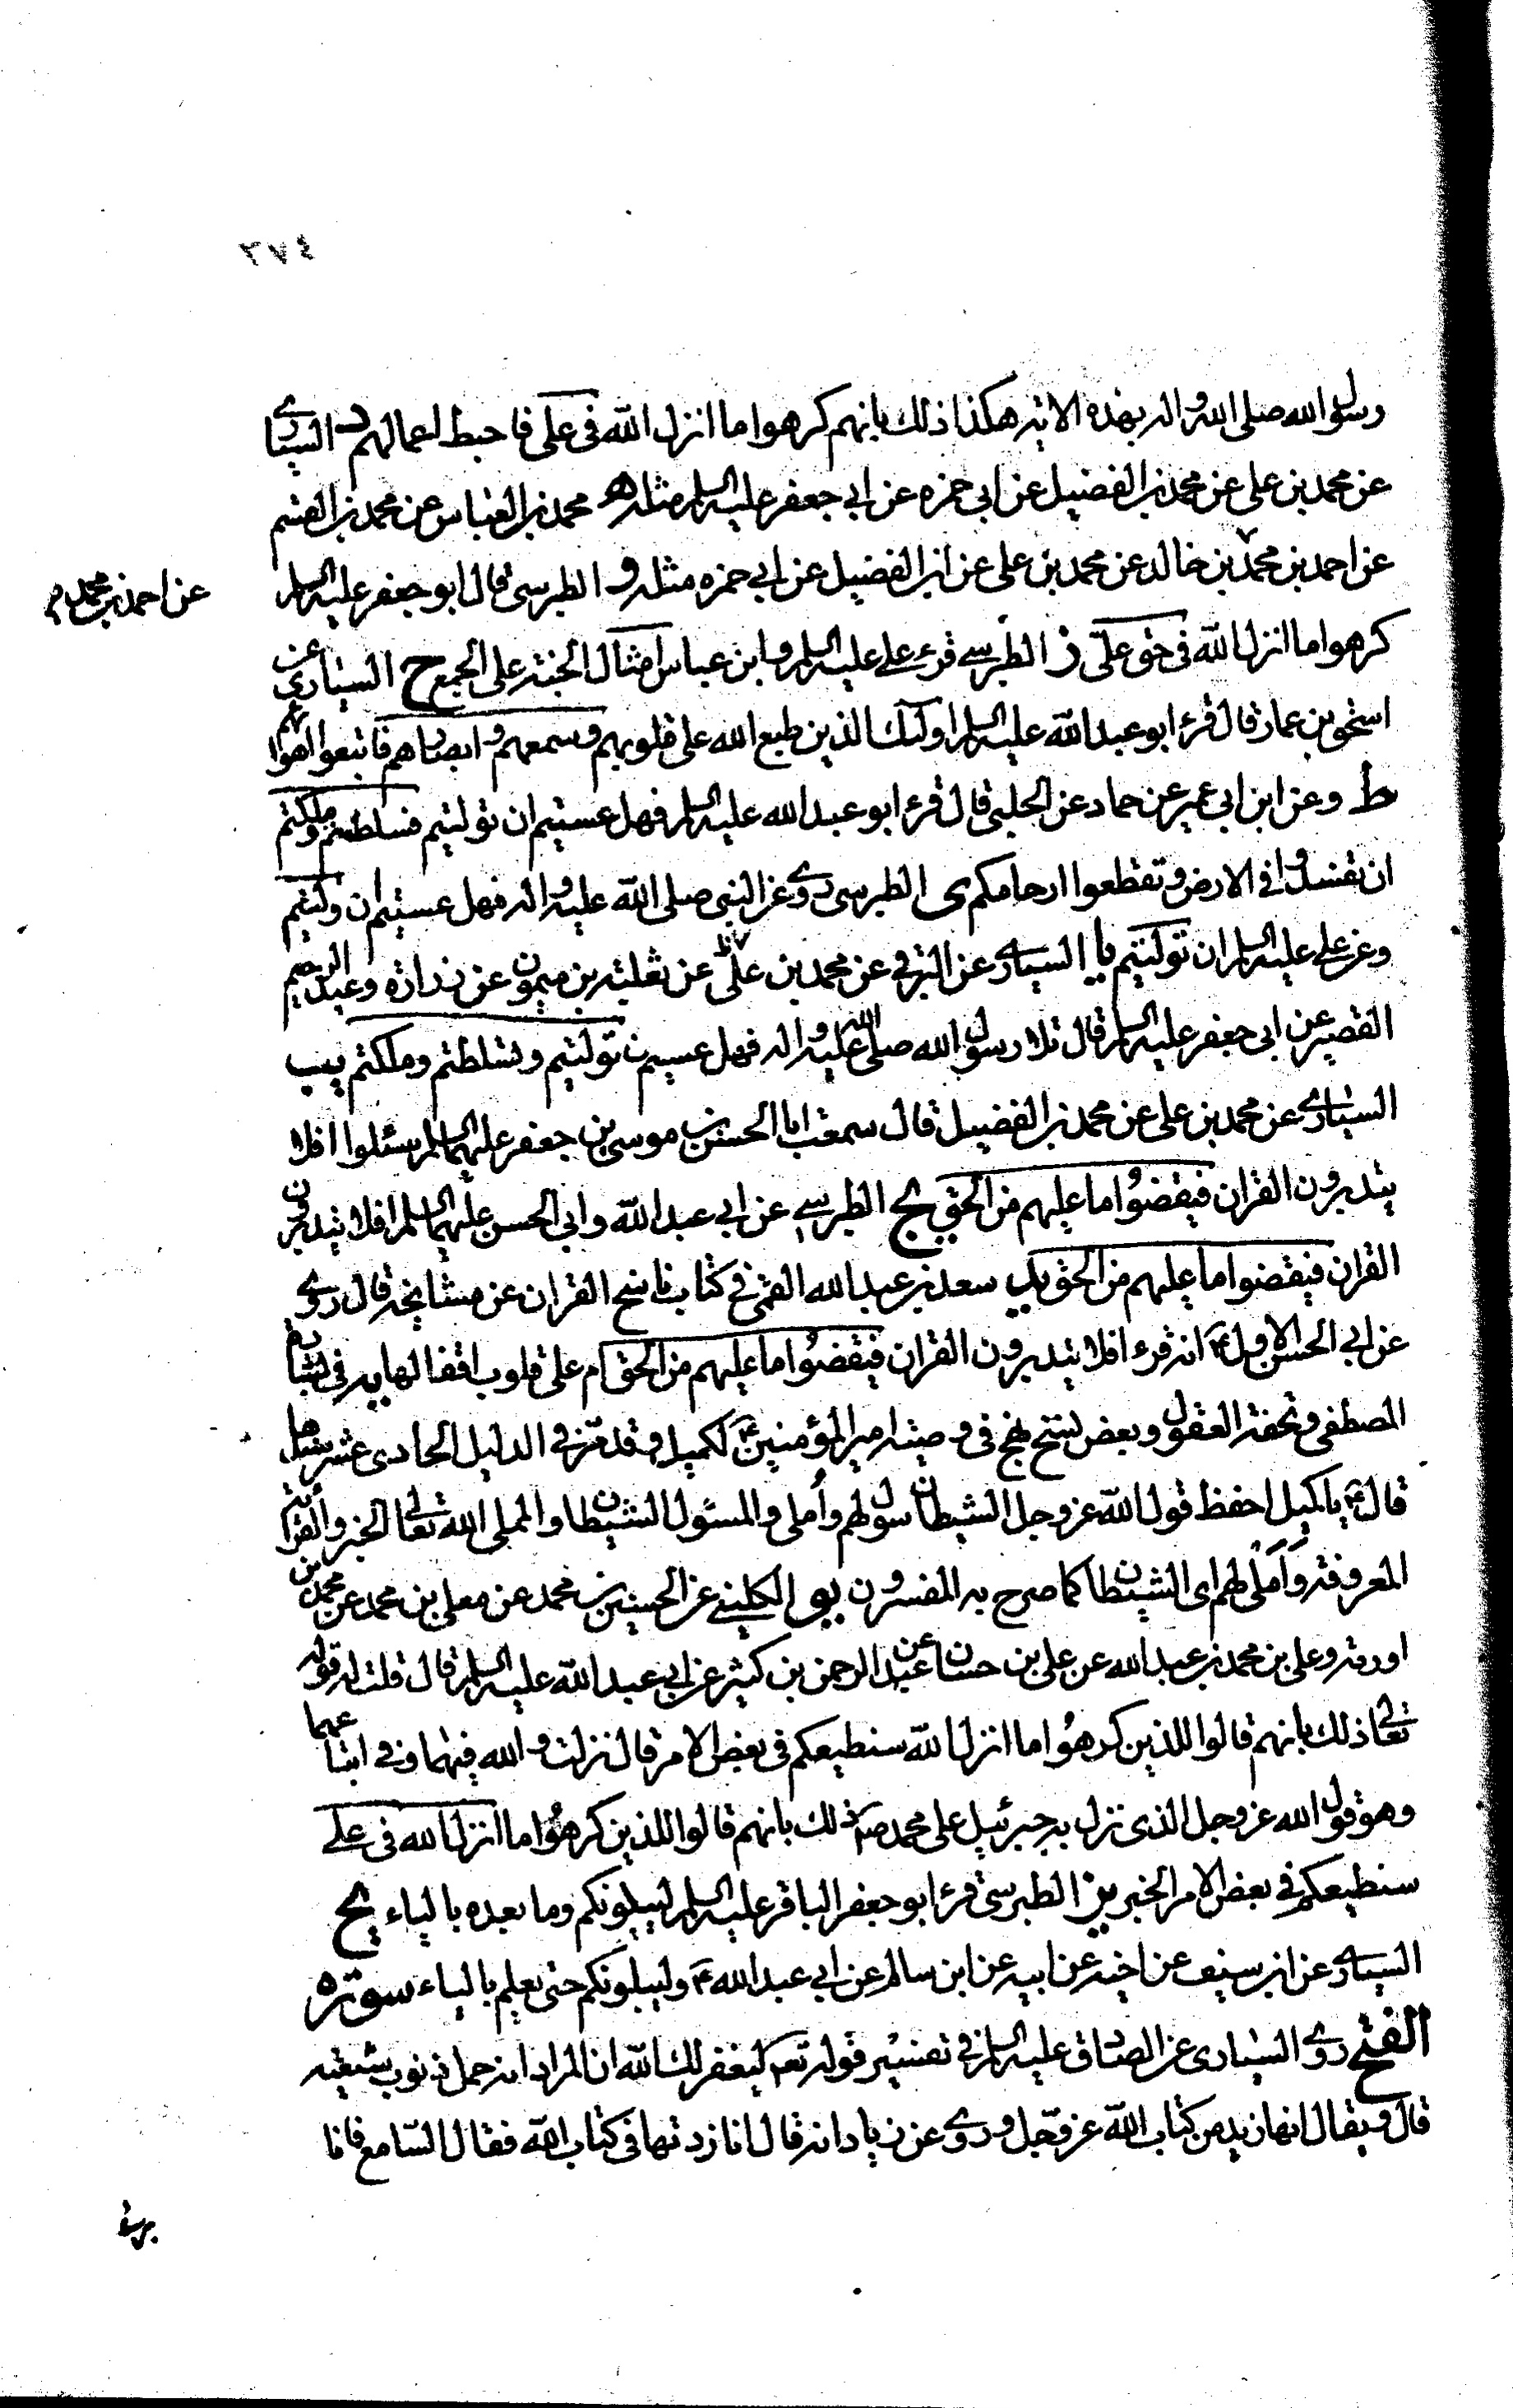 ٢٧٤
رسول الله صلى الله واله بهذه الاية هكذا ذلك بانهم كرهوا ما انزل الله فى على فاحبط اعمالهم د السيارى
عن محمد بن على عن محمد بن الفضيل عن ابى حمزه عن ابي جعفر عليه السلم مثله هـ محمد بن العباس عن محمد بن القسم
عن احمد بن محمد بن خالد عن محمد بن على عن ابن الفضيل عن ابي حمزه مثله و الطبرسى قال ابو جعفر عليه السلم
عن احمد بن محمد م
كرهوا ما انزل الله فى حق على ز الطبرسے قرء على عليه السلم وابن عباس امثال الجنة على الجمع ح السيارى عن
اسحق بن عمار قال قرء ابو عبد الله عليه السلم اولئك الذين طبع الله على قلوبهم وسمعهم وابصارهم فاتبعوا اهوائهم
ط وعن ابن ابى عمير عن حماد عن الحلبى قال قرء ابو عبد الله عليه السلم فهل عسيتم ان توليتم فسلطتم وملكتم
ان تفسدوا فى الارض وتقطعوا ارحامكم ى الطبرسى روى عن النبى صلى الله عليه واله فهل عسيتم ان وليتم
وعن على عليه السلم ان توليتم يا السيارى عن البرقى عن محمد بن على عن ثعلبة بن ميمون عن زرارة وعبد الرحيم
القصير عن ابى جعفر عليه السلم قال تلا رسول الله صلى الله عليه واله فهل عسيتم ن توليتم وتسلطتم وملكتم يب
السيارى عن محمد بن على عن محمد بن الفضيل قال سمعت ابا الحسن موسى بن جعفر عليهما السلم يسئلوا افلا
يتدبرون القران فيقضوا ما عليهم من الحق يج الطبرسے عن ابي عبد الله وابي الحسن عليهما السلم افلا يتدبرون
القران فيقضوا ما عليهم من الحق يد سعد بن عبد الله القمى فى كتاب ناسخ القران عن مشايخه قال روى
عن ابي الحسن الاول ع انه قرء افلا يتدبرون القران فيقضوا ما عليهم من الحق ام على قلوب اقفالها يه فى بشارة
المصطفى وتحفة العقول وبعض نسخ نهج فى وصية امير المؤمنين ع لكميل وقد مر فى الدليل الحادى عشر
قال ع يا كميل احفظ قول الله عز وجل الشيطان سول لهم وأملى والمسئول الشيطان والمملى الله تعالى الخبر والقرائة
المعروفة وأملى لهم اى الشيطان كما صرح به المفسرون يو الكلينے عن الحسين بن محمد عن معلى بن محمد عن محمد بن
اورمة وعلى بن محمد بن عبد الله عن على بن حسان عن عبد الرحمن بن كثير عن ابي عبد الله عليه السلم قال قلت له قوله
تعالى ذلك بانهم قالوا للذين كرهوا ما انزل الله سنطيعكم فى بعض الامر قال نزلت والله فيهما وفى اتباعهما
وهو قول الله عز وجل الذى نزل به جبرئيل على محمد ص ذلك بانهم قالوا للذين كرهوا ما انزل الله فى على
سنطيعكم فى بعض الامر الخبر يز الطبرسى قرء ابو جعفر الباقر عليه السلم ليبلونكم وما بعده بالياء يح
السيارى عن ابن سيف عن اخيه عن ابيه عن ابن سالم عن ابي عبد الله ع وليبلونكم حتى يعلم بالياء سورة
الفتح روى السيارى عن الصادق عليه السلم فى تفسير قوله تعه ليغفر لك الله ان المراد انه حمل ذنوب شيعته
قال ويقال انها زيد من كتاب الله عز وجل وروى عن زياد انه قال انا زدتها فى كتاب الله فقال السامع فانا